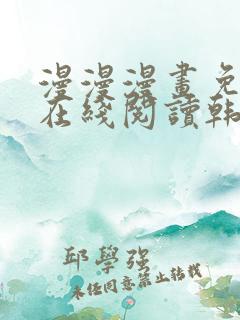 漫漫漫畫免
在綫閱讀韩
邱學强
未经同意禁止转载